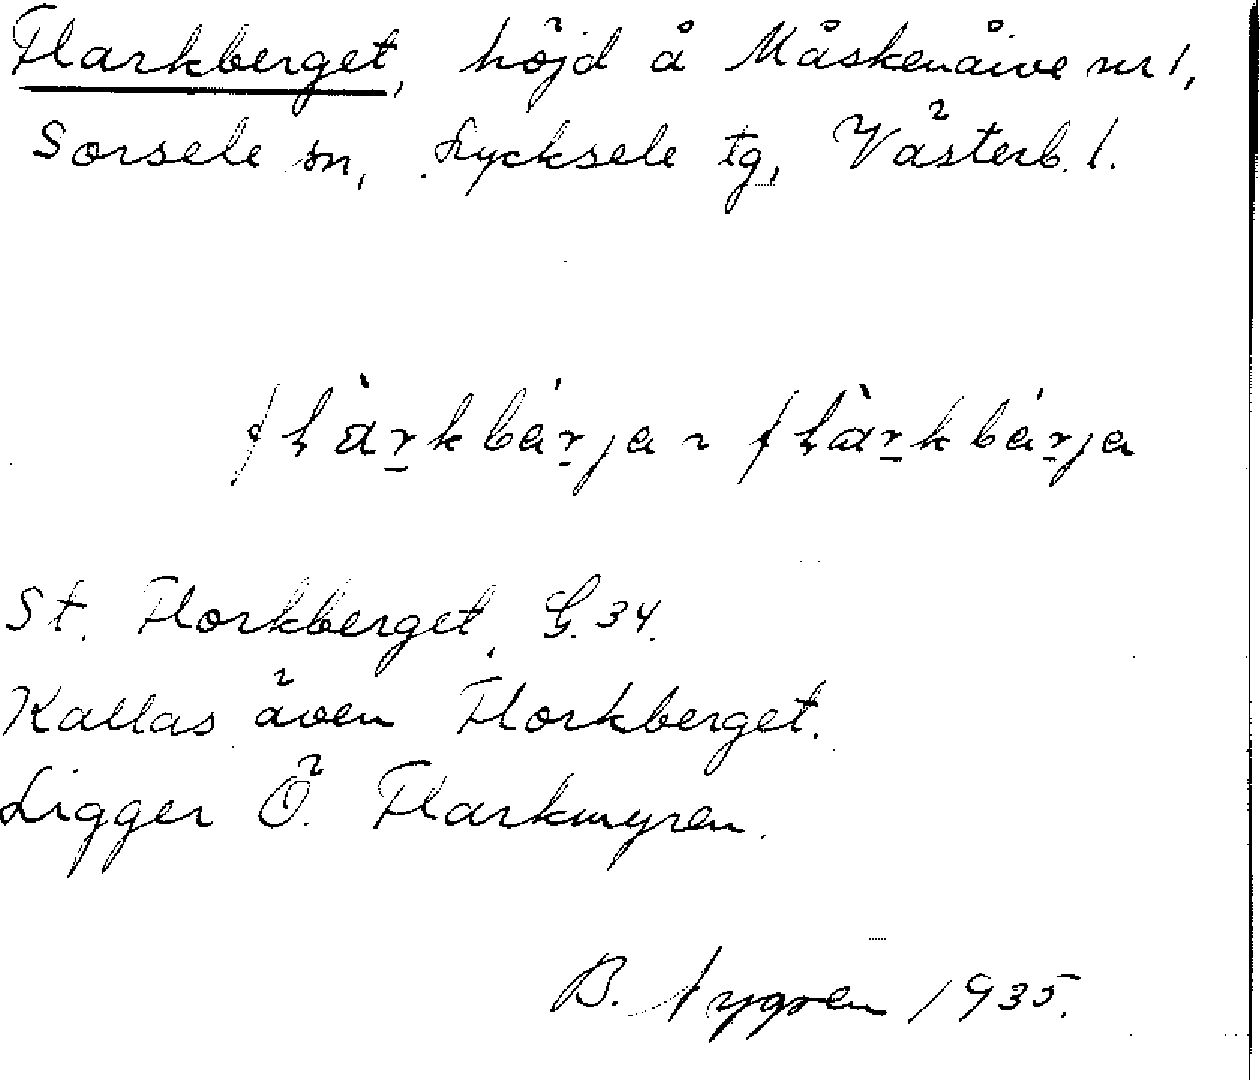 Flarkberget, höjd å Måskenåive nr 1,
Sorsele sn, Lycksele tg, Västerb. l.
St. Florkberget, G. 34.
Kallas även Florkberget.
Ligger Ö. Flarkmyren.
B. Nygren 1935.